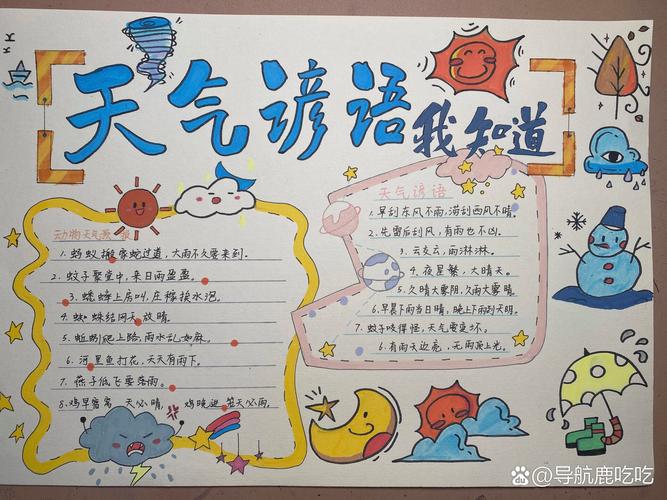 天气谚语我知道
动物天气
1.蚂蚁搬家蛇过道,大雨不久要来到。
2.蚊子聚堂中,来日雨盈盈。
3.蟋蟀上房叫,庄稼挨水泡。
4.蜘蛛结网天放晴。
5.蚯蚓爬上路,雨水乱如麻。
6.河里鱼打花,天天有雨下。
7.燕子低飞要落雨。
8.鸡早宿窝天必晴,鸡晚进笼天必雨。
天气谚语
1.早刮东风不雨,涝刮西风不晴。
2.先雷后刮风,有雨也不凶。
3.云交云,雨淋淋。
4.夜星繁,大晴天。
5.久晴大雾阴,久雨大雾晴。
6.早晨下雨当日晴,晚上下雨到天明。
7.蚊子咬得怪,天气要变坏。
8.有雨天边亮,无雨顶上光。
KK
Bai du 百度 @导航鹿吃吃